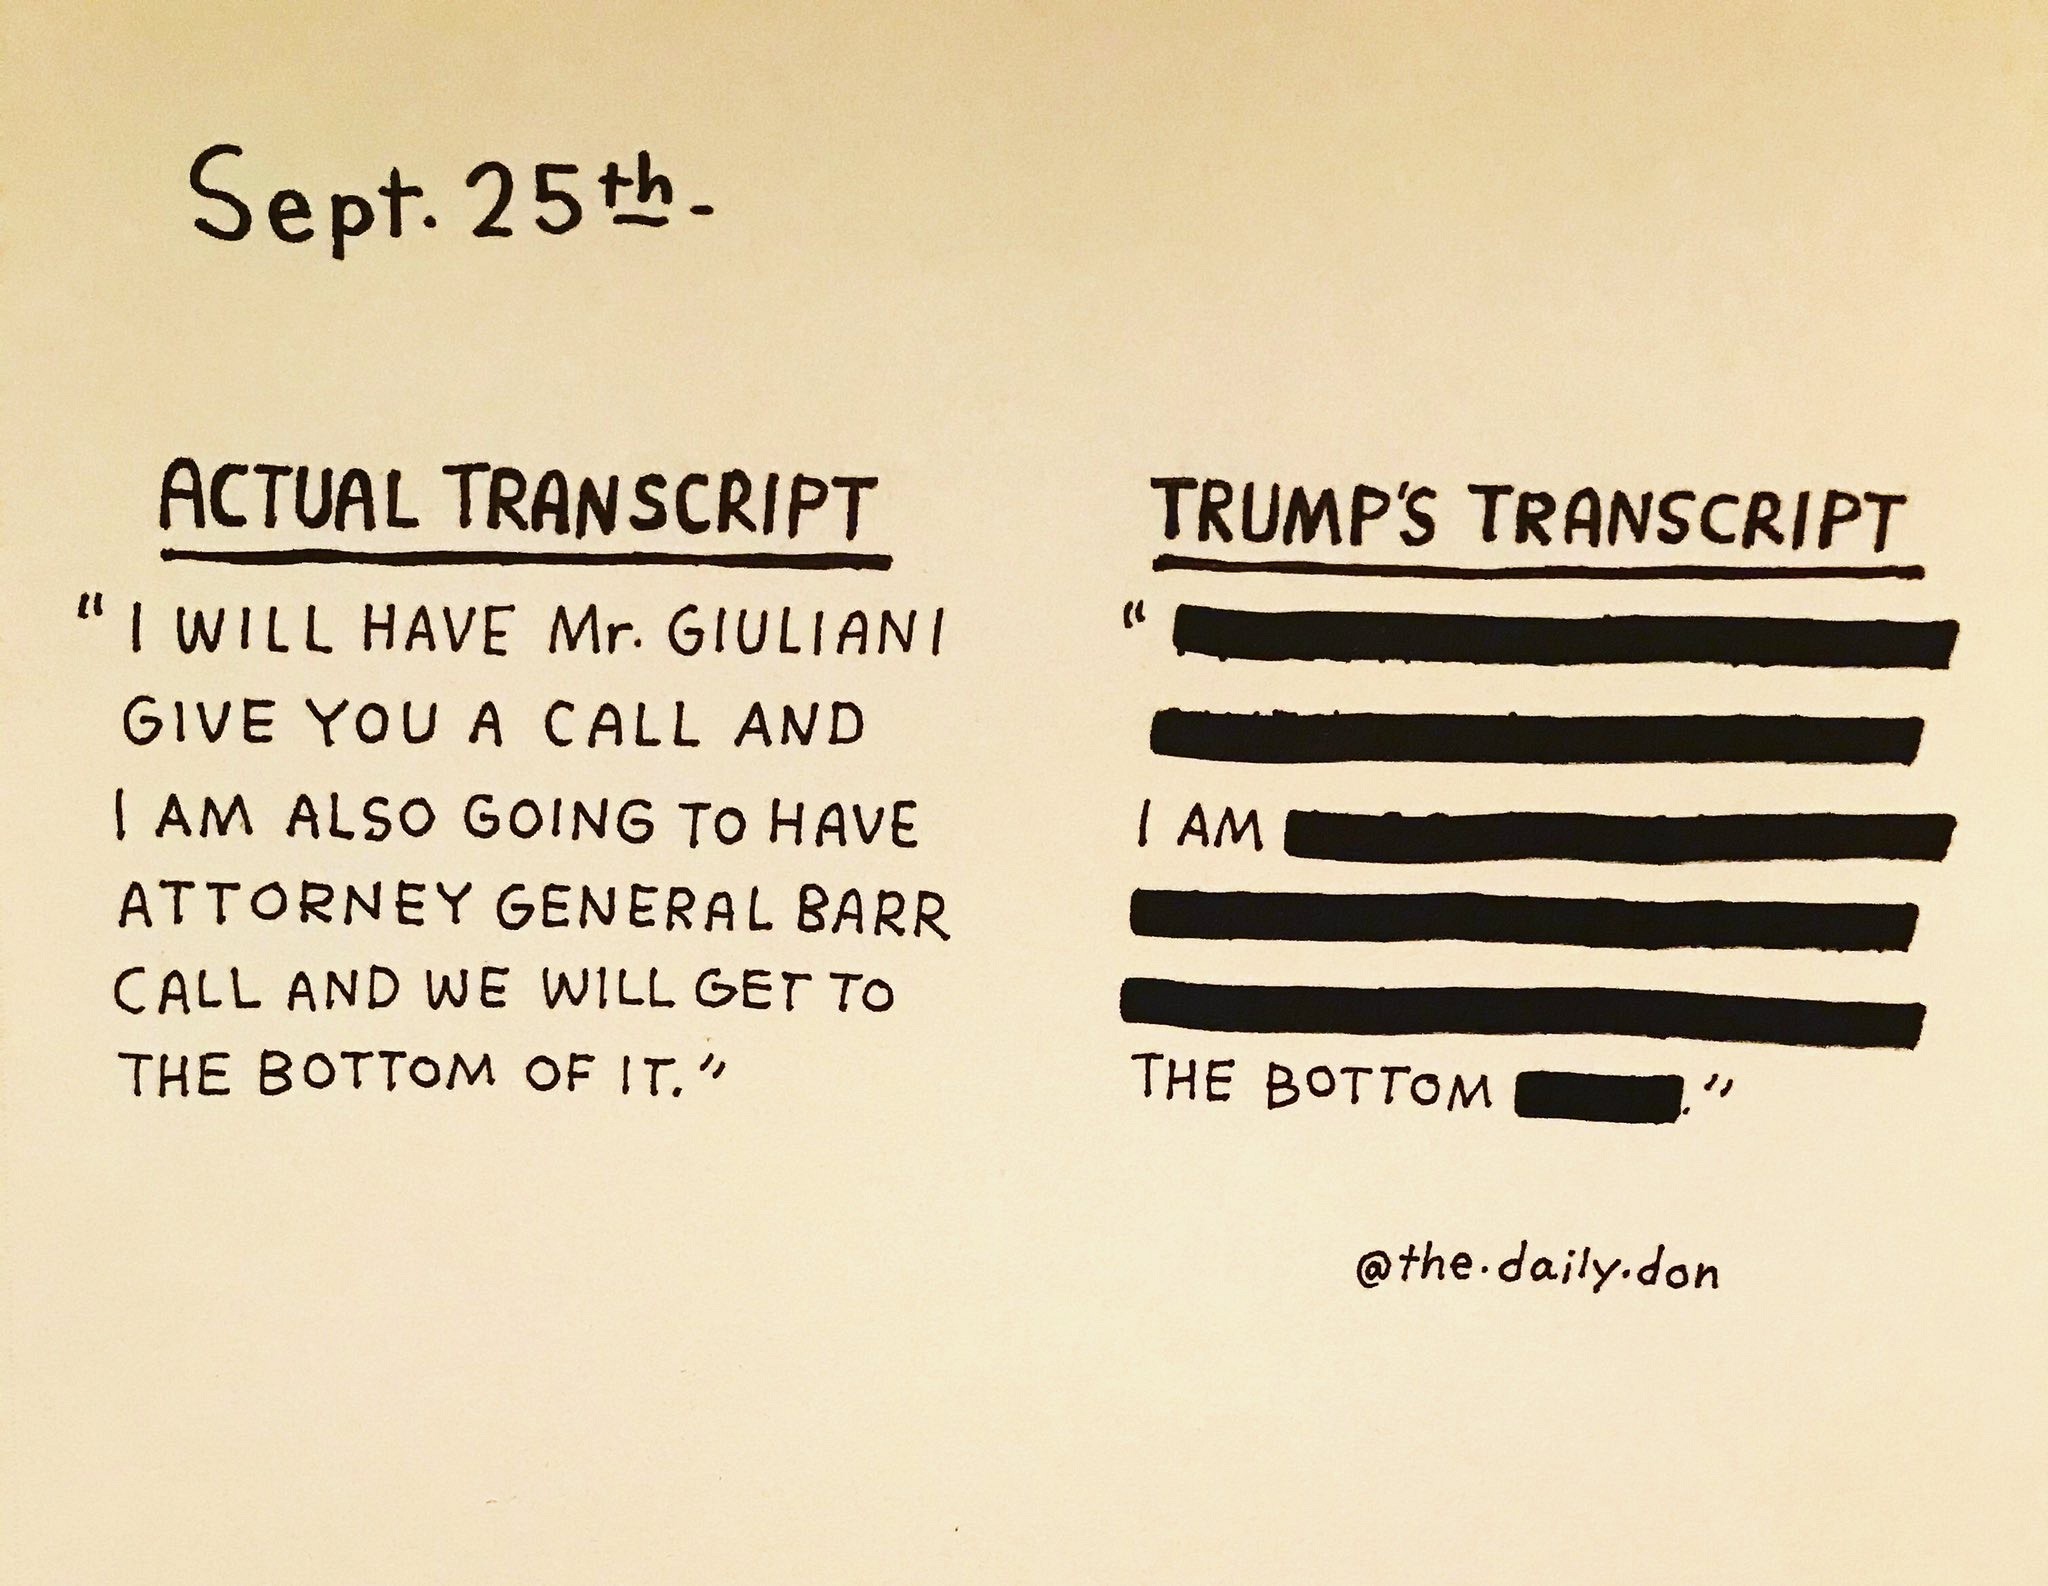 Sept. 25th-
ACTUAL TRANSCRIPT
“I WILL HAVE Mr. GIULIANI
GIVE YOU A CALL AND
I AM ALSO GOING TO HAVE
ATTORNEY GENERAL BARR
CALL AND WE WILL GET TO
THE BOTTOM OF IT.”
TRUMP'S TRANSCRIPT
“
I AM
THE BOTTOM .”
@the.daily.don